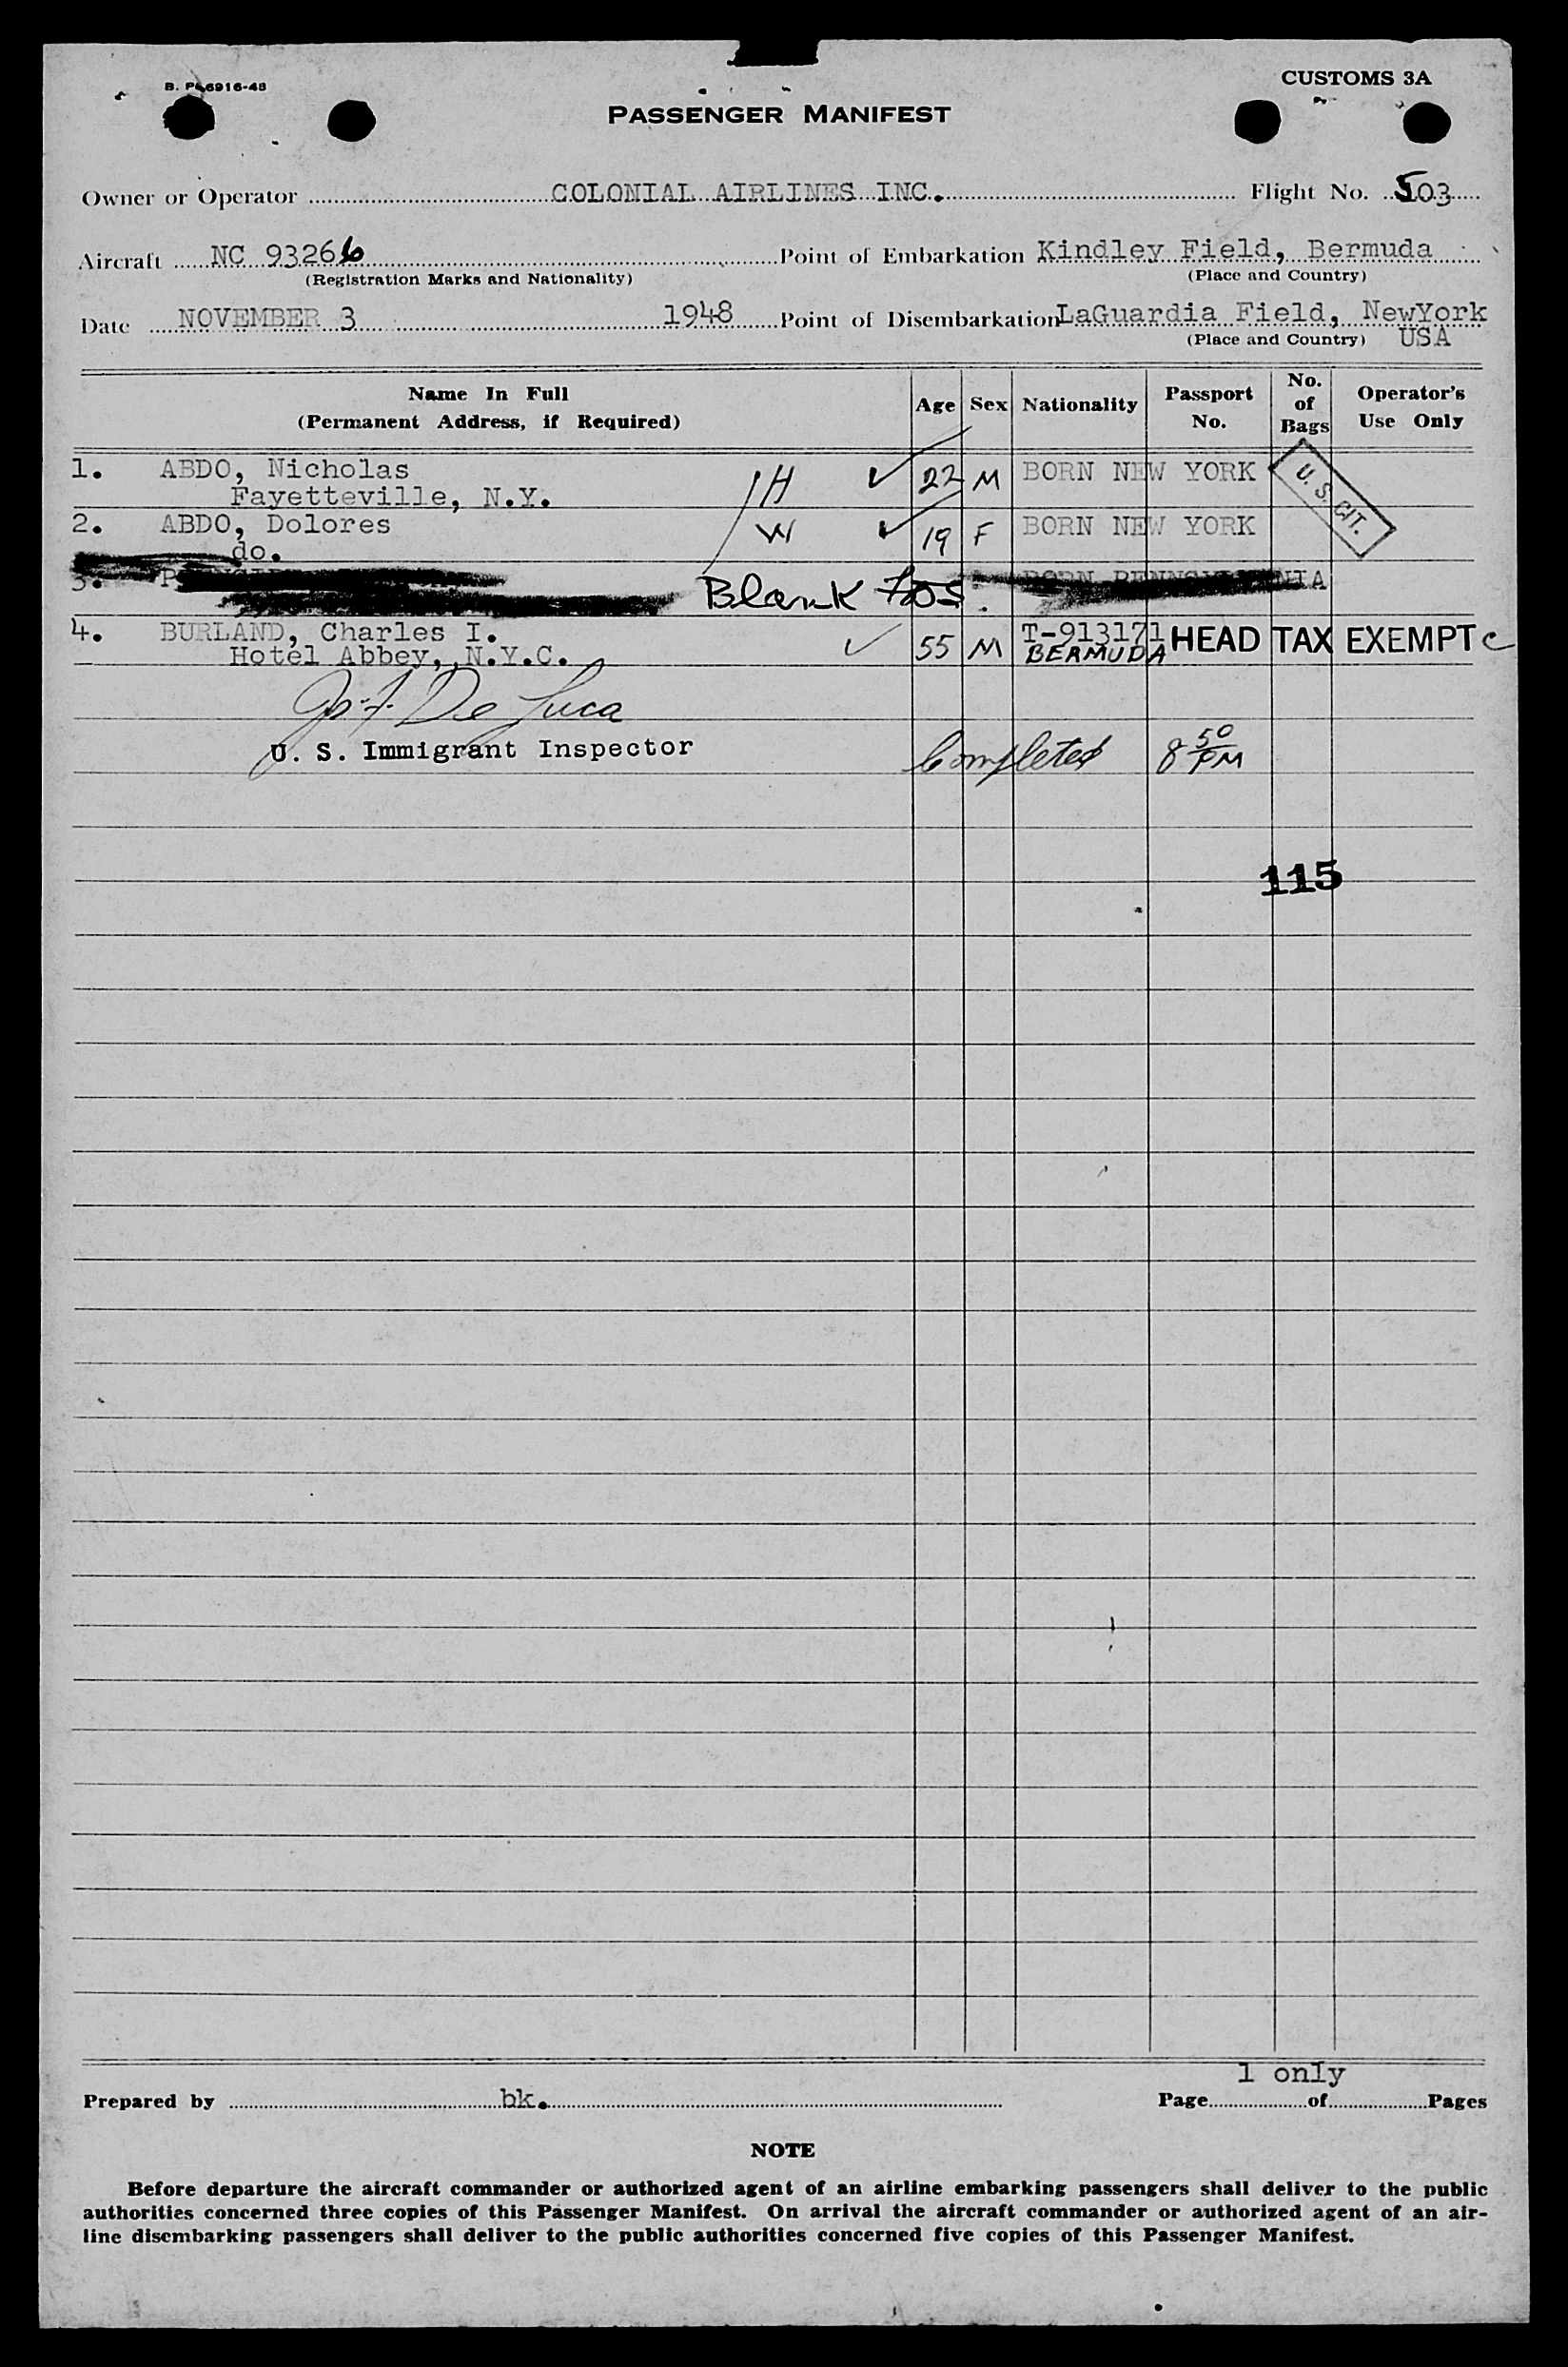 CUSTOMS 3A
PASSENGER MANIFEST
Owner or Operator COLONIAL AIRLINES INC. Flight No. 503
Aircraft NC 93266 Point of Embarkation Kindley Field, Bermuda
(Registration Marks and Nationality) (Place and Country)
Date NOVEMBER 3 1948 Point of Disembarkation LaGuardia Field, NewYork
(Place and Country) USA
Name In Full
(Permanent Address, if Required)
Age Sex Nationality
Passport No.
No. of Bags
Operator's Use Only
1. ABDO, Nicholas H 22 M BORN NEW YORK U. S. CIT.
Fayetteville, N.Y.
2. ABDO, Dolores W 19 F BORN NEW YORK
do.
3. Blank BORN
4. BURLAND, Charles I. 55 M T-913171 HEAD TAX EXEMPT c
Hotel Abbey, N.Y.C. BERMUDA
De Luca
U. S. Immigrant Inspector Completed 8 50 PM
115
1 only
Prepared by bk. Page of Pages
NOTE
Before departure the aircraft commander or authorized agent of an airline embarking passengers shall deliver to the public
authorities concerned three copies of this Passenger Manifest. On arrival the aircraft commander or authorized agent of an air-
line disembarking passengers shall deliver to the public authorities concerned five copies of this Passenger Manifest.